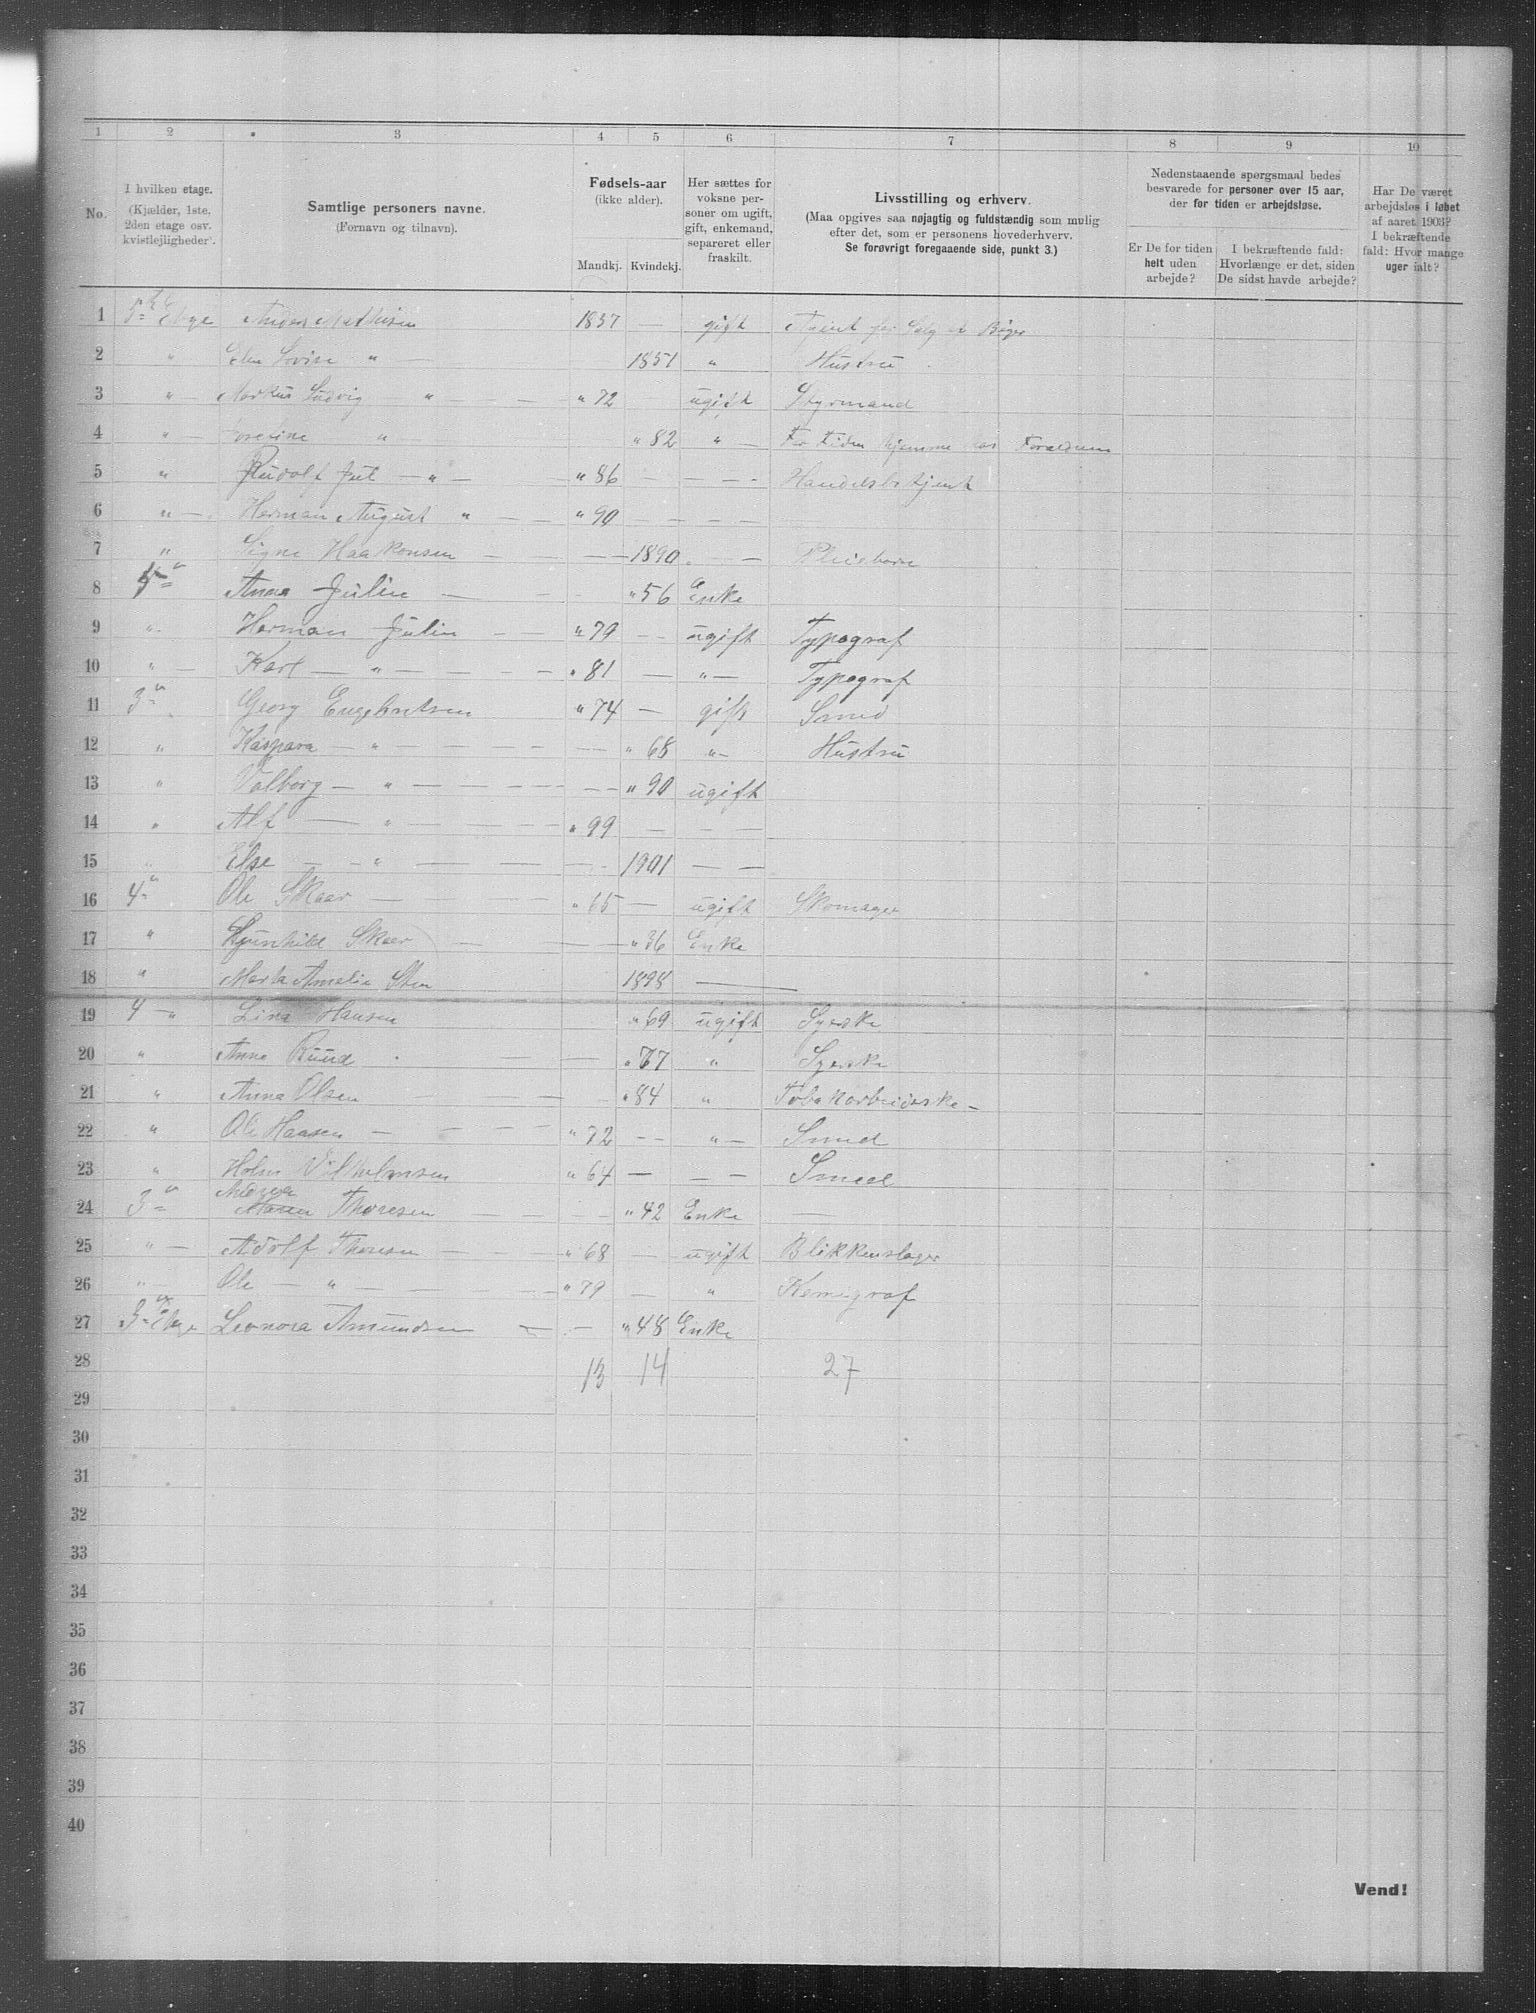 1 2 3 4 5 6 7 8 9 10
No.
I hvilken etage.
(Kjælder, 1ste,
2den etage osv.
kvistlejligheder).
Samtlige personers navne.
(Fornavn og tilnavn).
Fødsels-aar
(ikke alder).
Mandkj. Kvindekj.
Her sættes for
voksne per-
soner om ugift,
gift, enkemand,
separeret eller
fraskilt.
Livsstilling og erhverv.
(Maa opgives saa nøjagtig og fuldstændig som mulig
efter det, som er personens hovederhverv.
Se forøvrigt foregaaende side, punkt 3.)
Nedenstaaende spørgsmaal bedes
besvarede for personer over 15 aar,
der for tiden er arbejdsløse.
Er De for tiden
helt uden
arbejde?
I bekræftende fald:
Hvorlænge er det, siden
De sidst havde arbejde?
Har De været
arbejdsløs i løbet
af aaret 1903?
I bekræftende
fald: Hvor mange
uger ialt?
1 Etage Anders Mathisen 1837 — gift Agent for Salg af Bøger
2 " Elen Lovise " — 1851 " Hustru
3 " Markus Ludvig — " — "72 ugift Styrmand
4 " " "82 " — For Tiden hjemme hos Foraldrene
5 " Rudolf Jul — " — "86 — Handelsbetjent
6 " Herman August " — "90 — — —
7 " Signe Haakonsen — — 1890 — Pleiebarn
8 Anna Julin — "56 Enke
9 " Herman Julin — "79 — ugift Typograf
10 " Karl — " — "81 — " — Typograf
11 3" Georg Engebretsen "74 — gift Smed
12 " Kaspara — " — "68 " — Hustru
13 " Valborg — " — "90 ugift
14 " Alf — " — "99 — — —
15 " Else — " — 1901 — —
16 4" Ole Skaar — "65 — ugift Skomager
17 " Gunhild Skaar — "36 Enke
18 " Marta Amelia Sten 1898 —
19 4 — " Lina Hansen "69 ugift Syerske
20 " Anna Ruud — "67 " Syerske
21 " Anna Olsen — "84 " Tobakarbeiderske —
22 " Ole Haasen — "72 — " — Smed
23 " Holm Vilhelmsen "64 — — Smed
24 3" Andrea Maren Thoresen — "42 Enke —
25 " — Adolf Thoresen — "68 — ugift Blikkenslager
26 " — Ole — " — "79 — " Kemigraf
27 3" Etage Leonora Amundsen — "48 Enke
28 13 14 27
29
30
31
32
33
34
35
36
37
38
39
40
Vend!